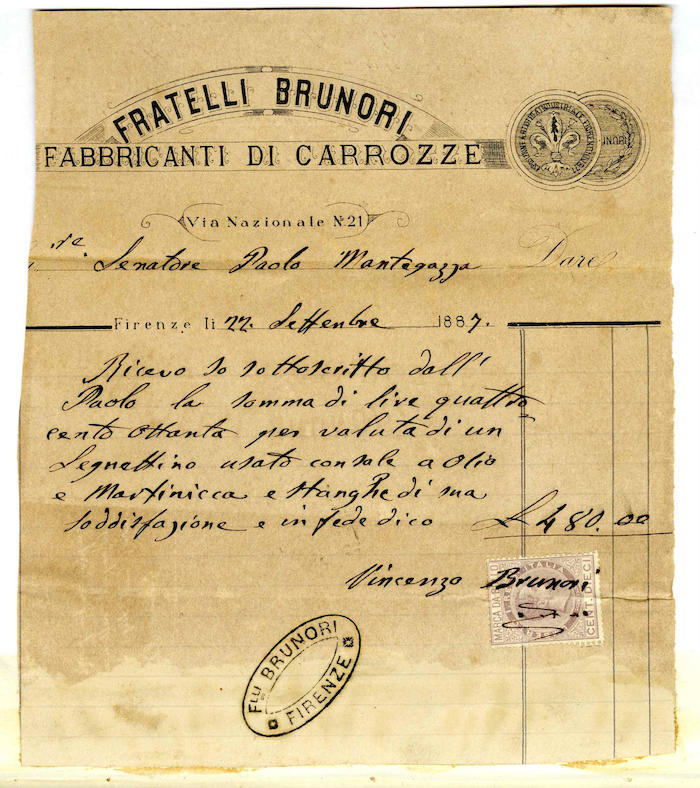 FRATELLI BRUNORI
FABBRICANTI DI CARROZZE
INORI
Via Nazionale N. 21
Senatore Paolo Mantegazza Dare
Firenze li 22. Settembre 1887.
Ricevo io sottoscritto dall'
Paolo la somma di live quattro
cento ottanta per valuta di un
Legnettino usato con sale a olio
e Martinicca e stanghe di sua
soddisfazione e in fede dico £ 480.00
Vincenzo Brunori
MARCA DA BOLLO
ITALIA
CENT. DIECI
FLLI BRUNORI
FIRENZE